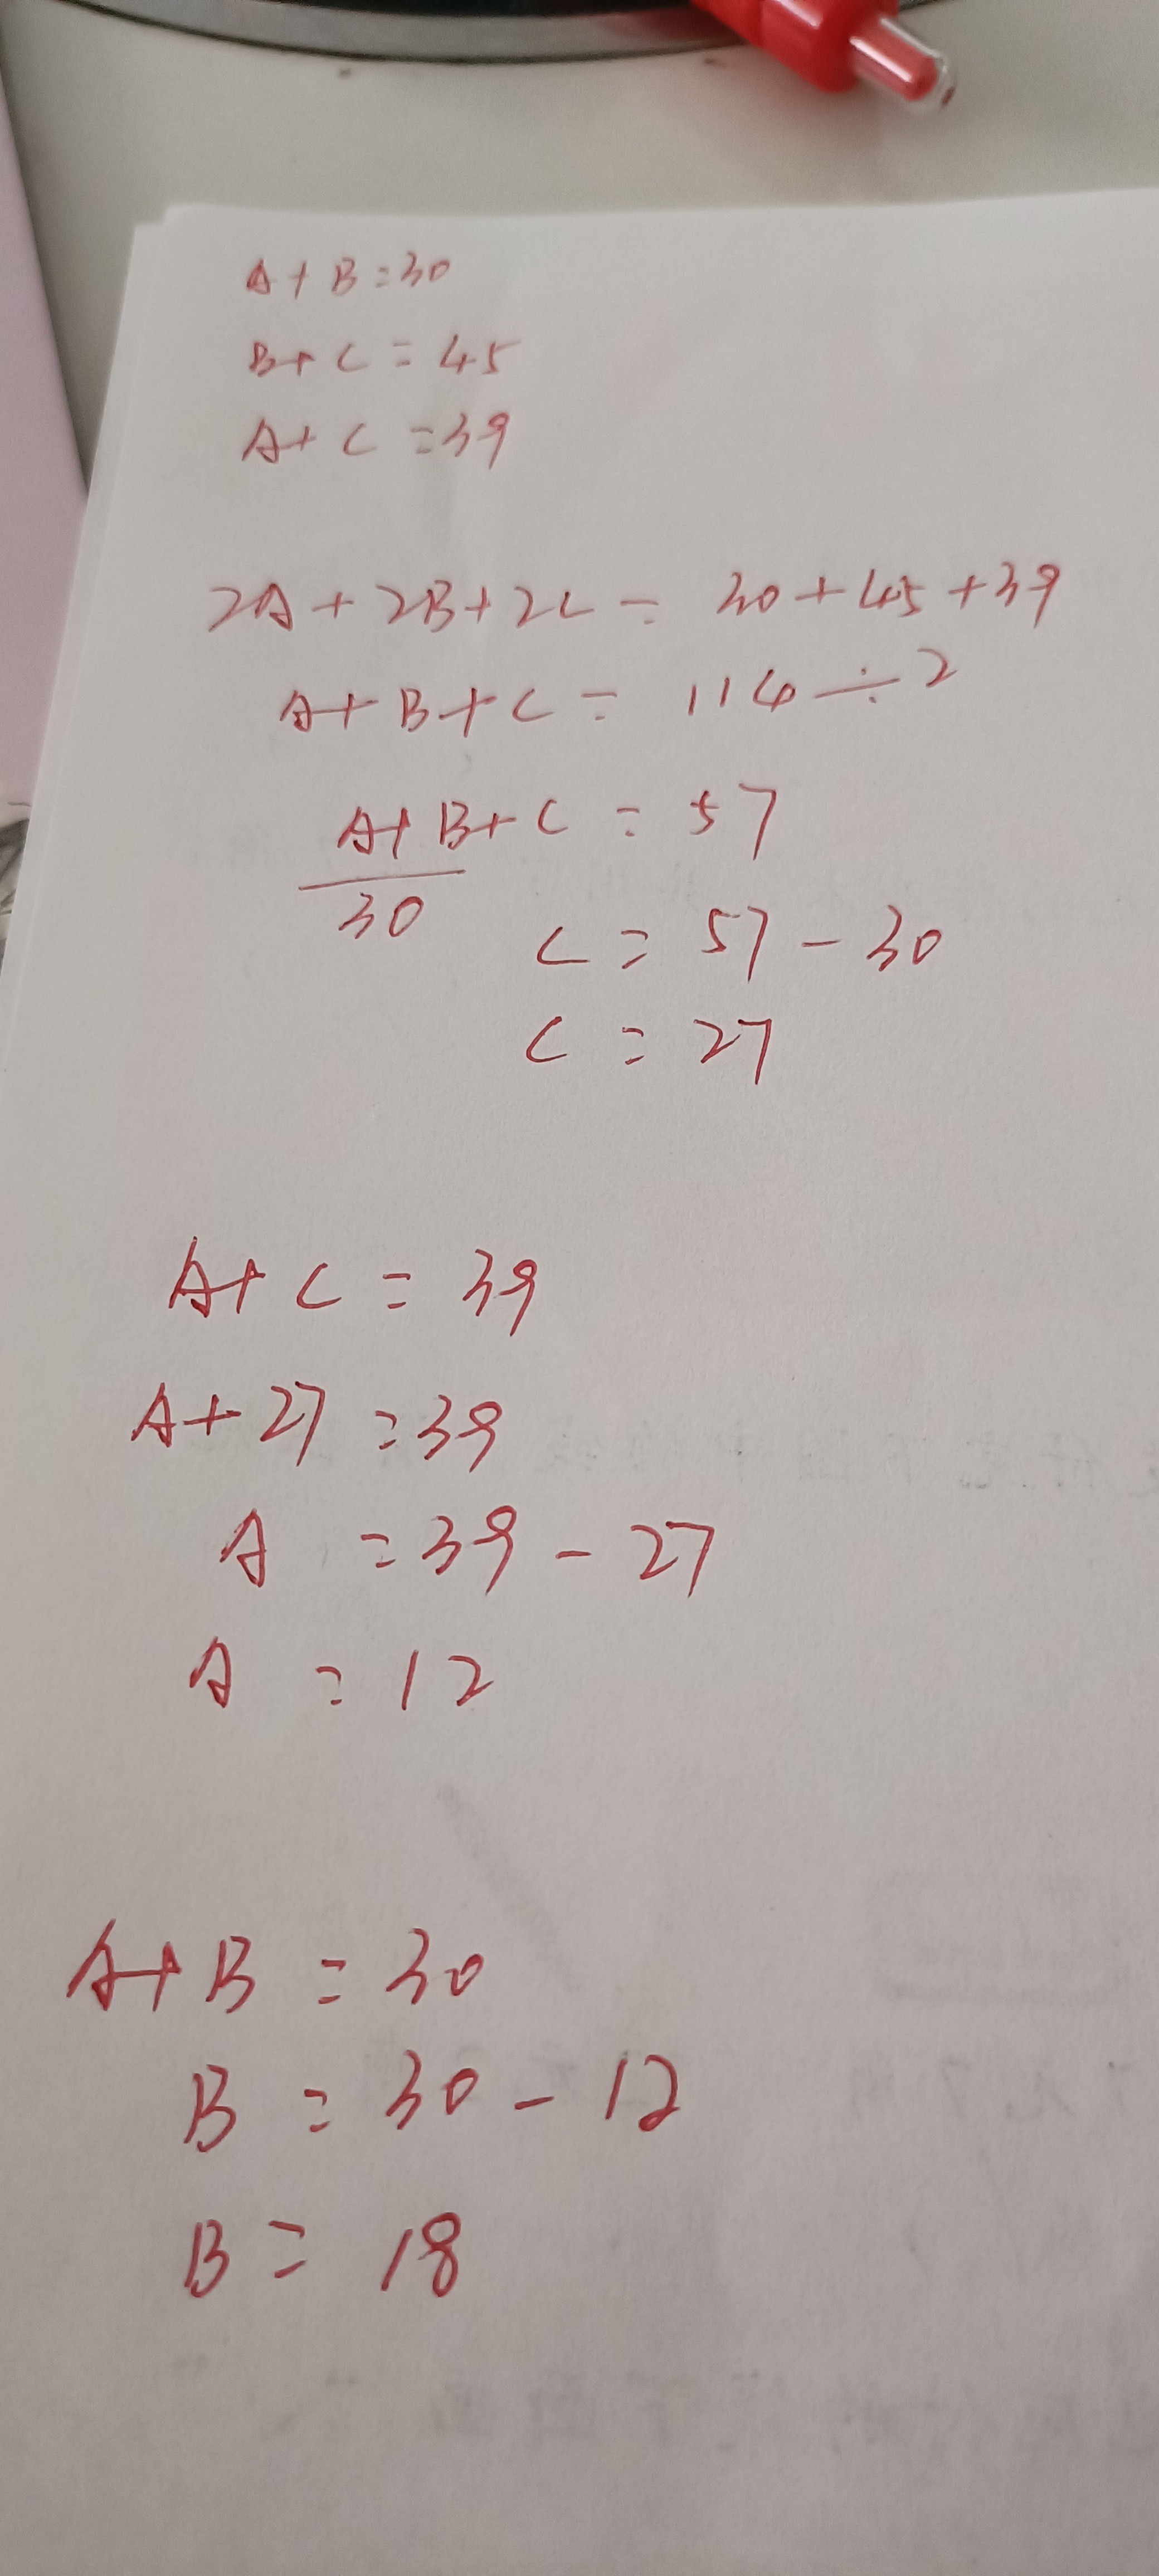 A+B=30
B+C=45
A+C=39
2A+2B+2C=30+45+39
A+B+C=114÷2
A+B+C=57
30
C=57-30
C=27
A+C=39
A+27=39
A=39-27
A=12
A+B=30
B=30-12
B=18